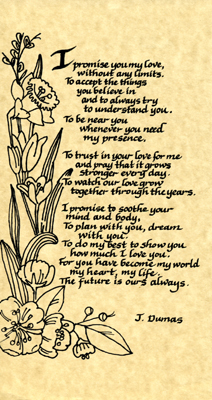 I promise you my love,
without any limits.
To accept the things
you believe in
and to always try
to understand you.
To be near you
whenever you need
my presence.
To trust in your love for me
and pray that it grows
stronger every day.
To watch our love grow
together through the years.
I promise to soothe your
mind and body,
To plan with you, dream
with you.
To do my best to show you
how much I love you.
For you have become my world
my heart, my life.
The future is ours always.
J. Dumas